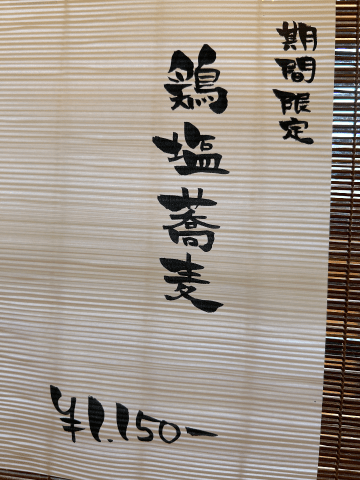 期間限定
鶏塩蕎麦
¥1.150-